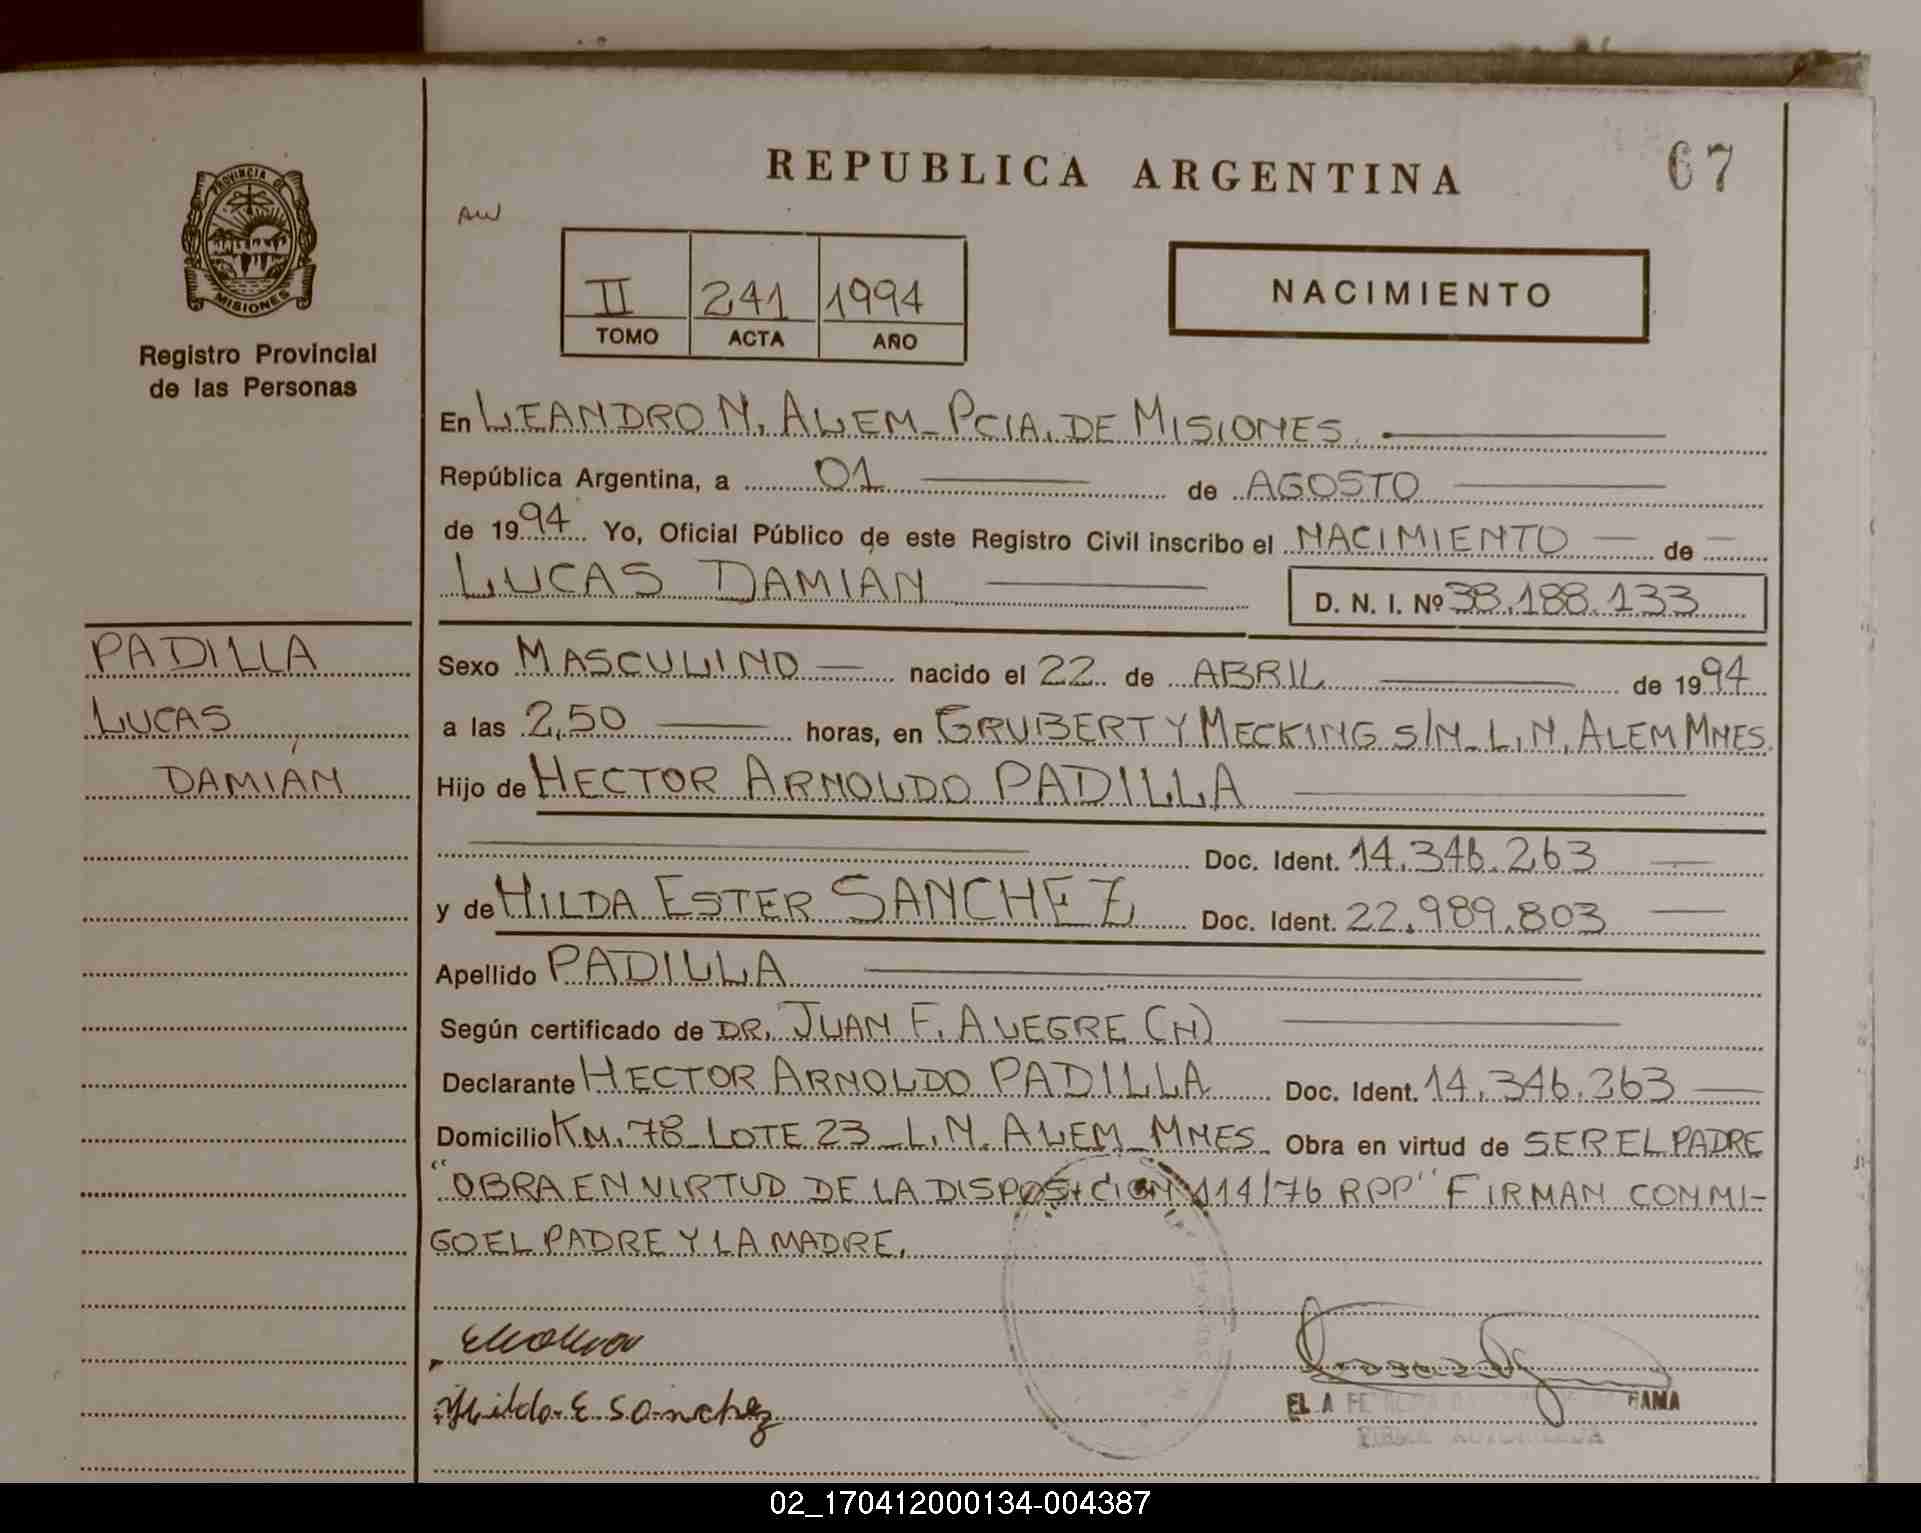 REPUBLICA ARGENTINA
67
AW
PROVINCIA DE
MISIONES
Registro Provincial
de las Personas
II 241 1994
TOMO ACTA AÑO
NACIMIENTO
En LEANDRO N. ALEM - PCIA. DE MISIONES.
República Argentina, a 01 de AGOSTO
de 1994 Yo, Oficial Público de este Registro Civil inscribo el NACIMIENTO de
LUCAS DAMIAN D. N. I. Nº 38.188.133
PADILLA
LUCAS
DAMIÁN
Sexo MASCULINO nacido el 22 de ABRIL de 1994
a las 2,50 horas, en GRUBERT Y MECKING S/N - L.N. ALEM MNES.
Hijo de HECTOR ARNOLDO PADILLA
Doc. Ident. 14.346.263
y de HILDA ESTER SANCHEZ Doc. Ident. 22.989.803
Apellido PADILLA
Según certificado de DR. JUAN F. ALEGRE (H)
Declarante HECTOR ARNOLDO PADILLA Doc. Ident. 14.346.263
Domicilio KM. 78 LOTE 23 - L.N. ALEM - MNES Obra en virtud de SER EL PADRE
"OBRA EN VIRTUD DE LA DISPOSICION 114/76 RPP" FIRMAN CONMI-
GO EL PADRE Y LA MADRE.
Hilda E Sanchez
FIRMA AUTORIZADA
02_170412000134-004387